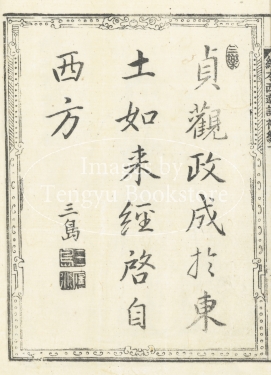 貞觀政成於東
土如来經啓自
西方
三島
Image by
Tengyu Bookstore